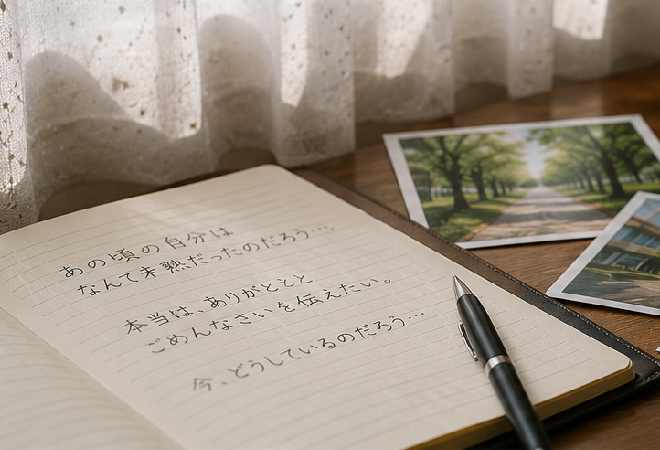 あの頃の自分は
なんて未熟だったのだろう…
本当は、ありがとと
ごめんなさいを伝えたい。
今、どうしているのだろう…